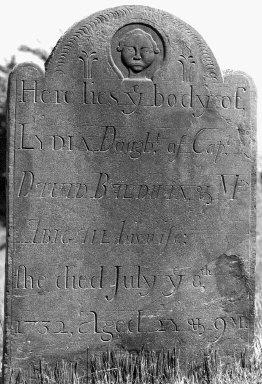 Here lies yͤ body of
LYDIA Daughᵗ. of Capᵗ.
DAVID BALDWIN & Mʳˢ
ABIGAIL his wife:
she died July yͤ 8ᵗʰ
1732, Aged 2Y & 9M